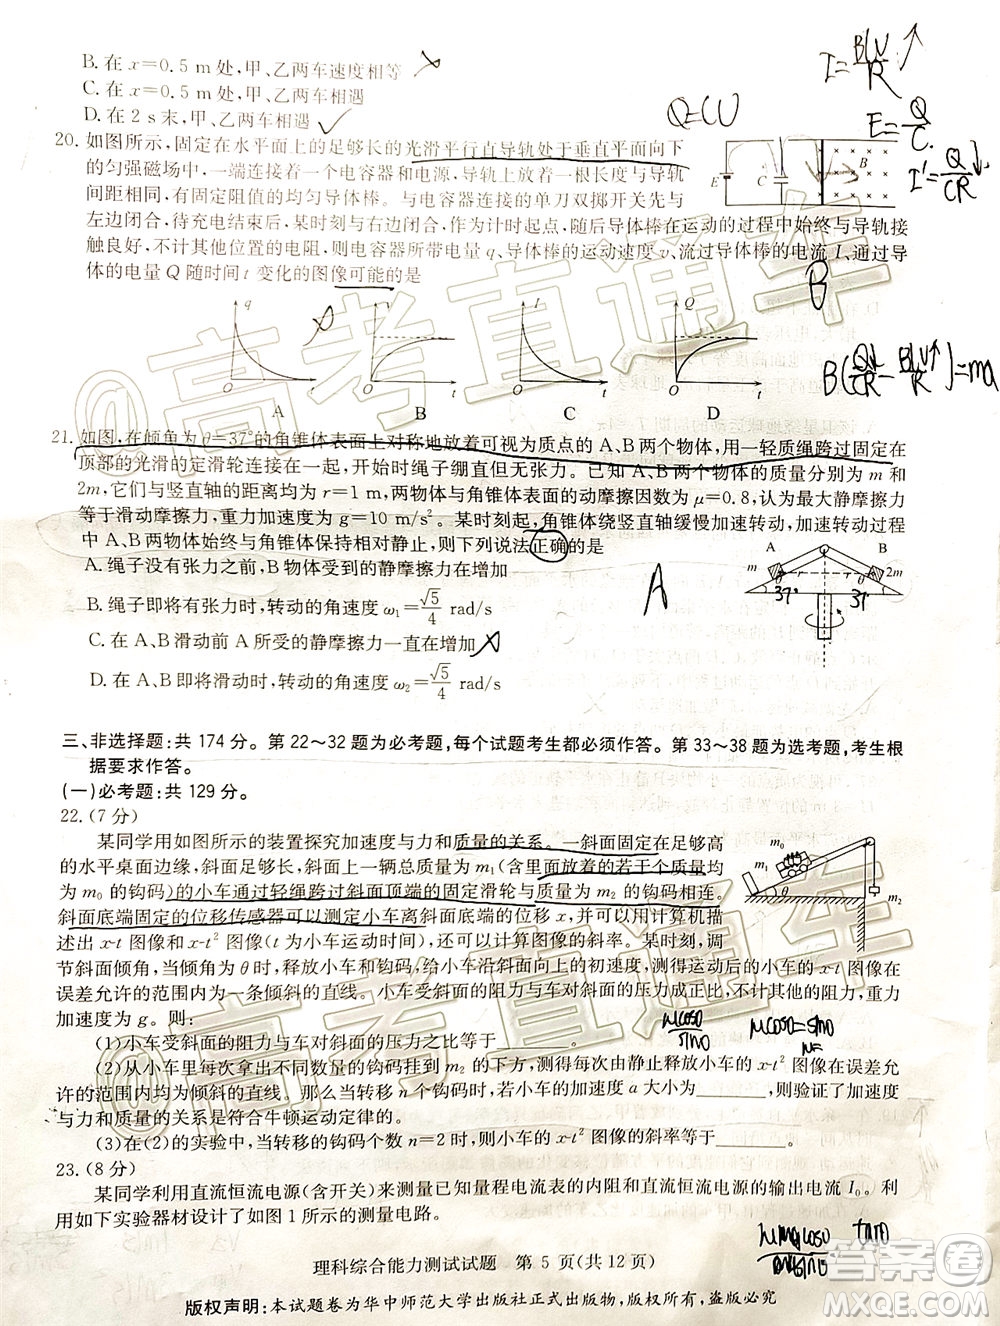 B. 在 x=0.5 m 处,甲、乙两车速度相等
C. 在 x=0.5 m 处,甲、乙两车相遇
D. 在 2 s 末,甲、乙两车相遇
I=BLV/R
Q=CU
E=Q/C
I'=Q/CR
20. 如图所示,固定在水平面上的足够长的光滑平行直导轨处于垂直平面向下
的匀强磁场中,一端连接着一个电容器和电源,导轨上放着一根长度与导轨
间距相同、有固定阻值的均匀导体棒。与电容器连接的单刀双掷开关先与
左边闭合,待充电结束后,某时刻与右边闭合,作为计时起点,随后导体棒在运动的过程中始终与导轨接
触良好,不计其他位置的电阻,则电容器所带电量 q、导体棒的运动速度 v、流过导体棒的电流 I、通过导
体的电量 Q 随时间 t 变化的图像可能的是
E C B
B
q O t v O t I O t Q O t
A B C D
@高考直通车
21. 如图,在倾角为θ=37°的角锥体表面上对称地放着可视为质点的 A、B 两个物体,用一轻质绳跨过固定在
顶部的光滑的定滑轮连接在一起,开始时绳子绷直但无张力。已知 A、B 两个物体的质量分别为 m 和
2m,它们与竖直轴的距离均为 r=1 m,两物体与角锥体的动摩擦因数为 μ=0.8,认为最大静摩擦力
等于滑动摩擦力,重力加速度为 g=10 m/s²。某时刻起,角锥体绕竖直轴缓慢加速转动,加速转动过程
中 A、B 两物体始终与角锥体保持相对静止,则下列说法正确的是
A. 绳子没有张力之前,B 物体受到的静摩擦力在增加
B. 绳子即将有张力时,转动的角速度 ω₁=√5/4 rad/s
C. 在 A、B 滑动前 A 所受的静摩擦力一直在增加
D. 在 A、B 即将滑动时,转动的角速度 ω₂=√5/4 rad/s
A
A B
m r r 2m
37° 37°
三、非选择题:共 174 分。第 22～32 题为必考题,每个试题考生都必须作答。第 33～38 题为选考题,考生根
据要求作答。
(一)必考题:共 129 分。
22. (7 分)
某同学用如图所示的装置探究加速度与力和质量的关系。一斜面固定在足够高
的水平桌面边缘,斜面足够长,斜面上一辆总质量为 m₁(含里面放着的若干个质量
为 m₀ 的钩码)的小车通过轻绳跨过斜面顶端的固定滑轮与质量为 m₂ 的钩码相连。
斜面底端固定的位移传感器可以测定小车离斜面底端的位移 x,并可以用计算机描
述出 x-t 图像和 x-t² 图像(t 为小车运动时间),还可以计算图像的斜率。某时刻,调
节斜面倾角,当倾角为 θ 时,释放小车和钩码,给小车沿斜面向上的初速度,测得运动的小车的 x-t 图像在
误差允许的范围内为一条倾斜的直线。小车受斜面的阻力与车对斜面的压力成正比,不计其他阻力,重力
加速度为 g。则:
m₀ m₁ θ m₂
(1)小车受斜面的阻力与车对斜面的压力之比等于________。
(2)从小车里每次拿出一个钩码挂在 m₂ 的下方,测得每次由静止释放小车的 x-t² 图像在误差允
许的范围内均为倾斜的直线。当移去 n 个钩码时,若小车的加速度 a 大小等于________,则验证了加速度
与力和质量的关系是符合牛顿运动定律的。
(3)在(2)的实验中,当转移的钩码个数 n=2 时,则小车的 x-t² 图像的斜率等于________。
23. (8 分)
某同学利用直流恒流电源(含开关)来测量已知量程电流表的内阻和直流恒流电源的输出电流 I₀。利
用如下实验器材设计了如图 1 所示的测量电路。
理科综合能力测试试题 第 5 页(共 12 页)
版权声明:本试题卷为华中师范大学出版社正式出版物,版权所有,盗版必究
答案圈
MXQE.COM